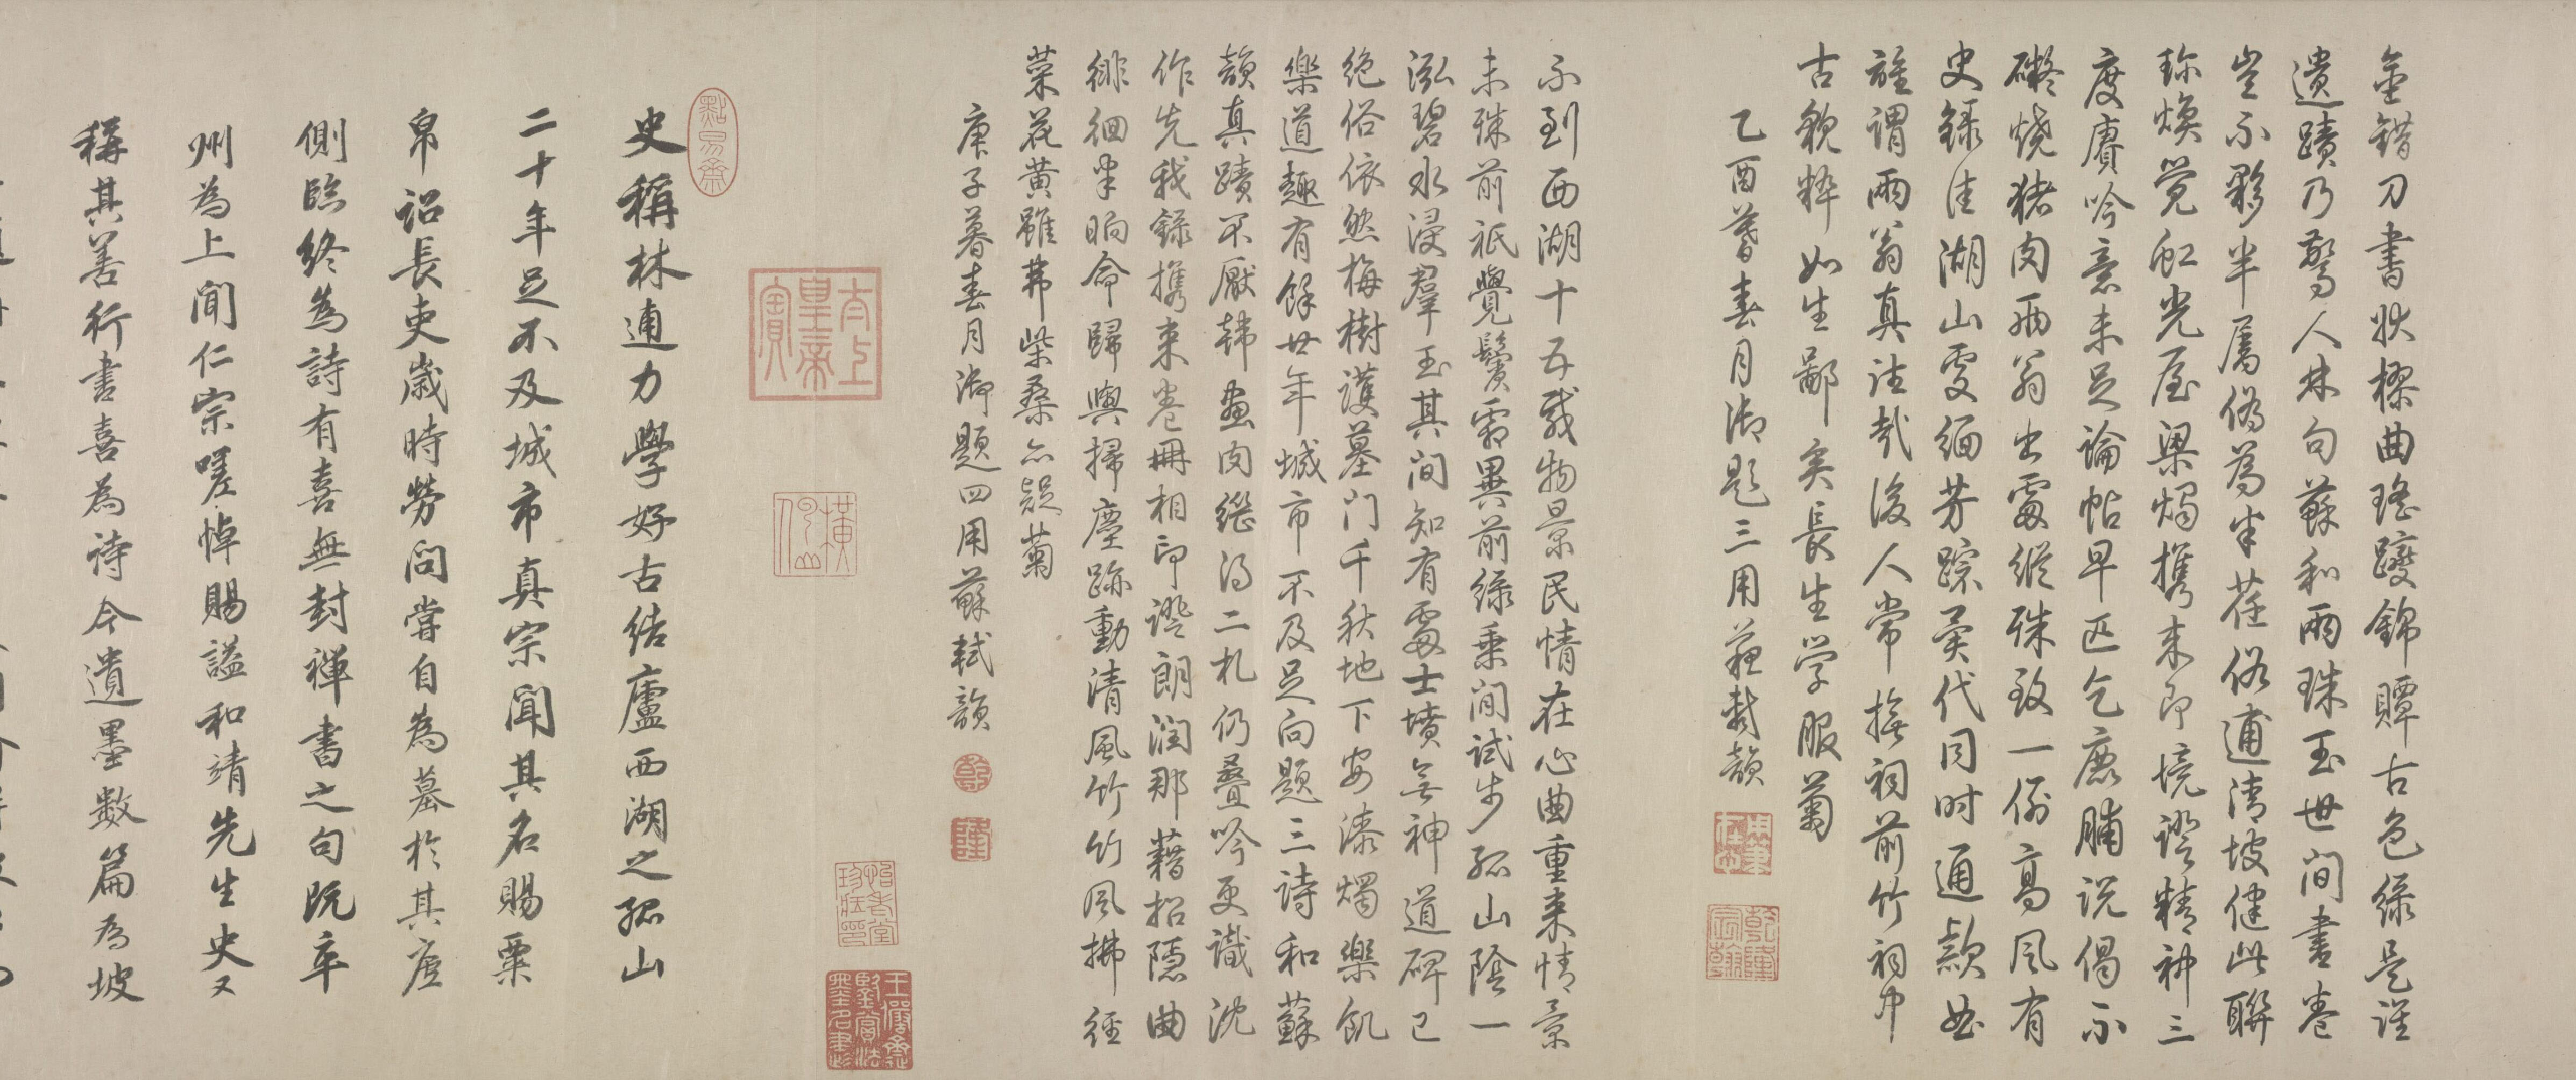 金錯刀書狀樛曲瑤躞錦贉古色綠是誰
遺蹟乃驚人林句蘇和兩珠玉世間書卷
豈不夥半屬偽為半荏俗逋清坡健此聯
珎煥覺虹光壓梁燭攜来即境證精神三
度賡吟意未足論帖早匹乞鹿脯說偈不
礙燒猪肉兩翁出處縱殊致一例高風有
史錄佳湖山處緬芳蹤異代同时通欵曲
誰謂兩翁真往哉後人常搽祠前竹祠中
古貌粹如生鄙矣長生学服菊
乙酉暮春月御題三用蘇軾韻
不到西湖十五載物景民情在心曲重来情景
未殊前祇覺鬢霜異前綠乗閒試步孤山陰一
泓碧水浸羣玉其間知有處士墳無神道碑已
絕俗依然梅樹護墓门千秋地下安漆燭樂飢
樂道趣有餘廿年城市不及足向題三詩和蘇
韻真蹟不厭韩畫肉繼得二札仍叠吟更識沈
作先我錄攜来卷冊相印證朗潤那藉招隱曲
徘徊半晌命歸輿掃塵跡動清風竹竹風拂徑
菜花黃雖弗柴桑亦疑菊
庚子暮春月御題四用蘇軾韻
乾
隆
太上皇帝之寶
史稱林逋力學好古結廬西湖之孤山
二十年足不及城市真宗聞其名賜粟
帛詔長吏歲時勞問嘗自為墓於其廬
側臨終為詩有喜無封禪書之句既卒
州為上聞仁宗嗟悼賜謚和靖先生史又
稱其善行書喜為诗今遺墨数篇為坡